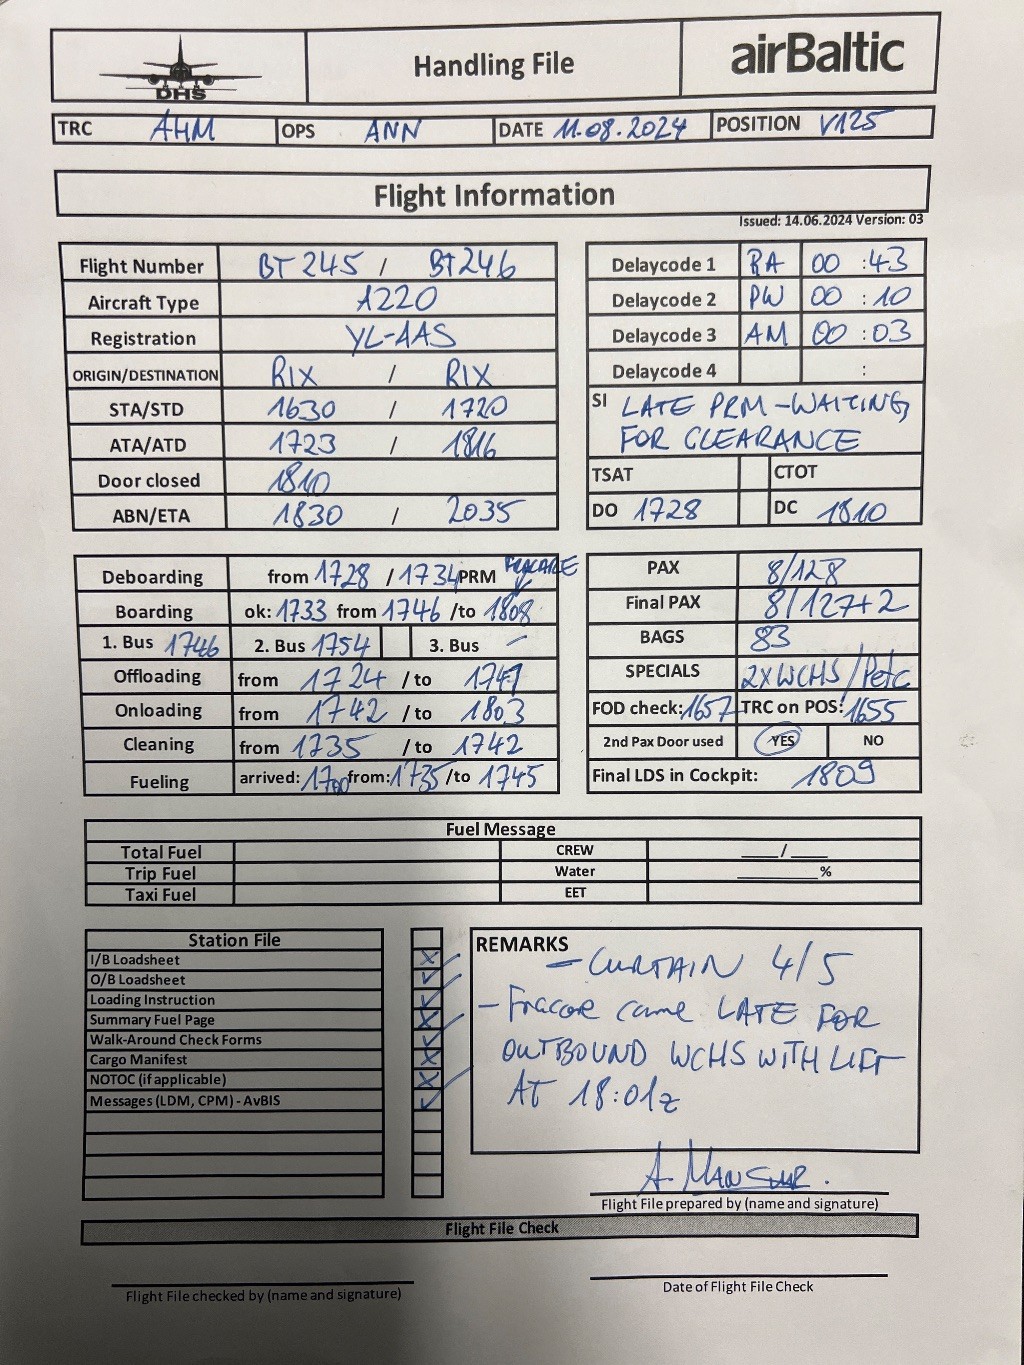 DHS
Handling File
airBaltic
TRC AHM OPS ANN DATE 11.08.2024 POSITION V125
Flight Information
Issued: 14.06.2024 Version: 03
Flight Number BT 245 / BT246
Aircraft Type A220
Registration YL-AAS
ORIGIN/DESTINATION RIX / RIX
STA/STD 1630 / 1720
ATA/ATD 1723 / 1816
Door closed 1810
ABN/ETA 1830 / 2035
Delaycode 1 RA 00 :43
Delaycode 2 PW 00 : 10
Delaycode 3 AM 00 : 03
Delaycode 4 :
SI LATE PRM - WAITING
FOR CLEARANCE
TSAT CTOT
DO 1728 DC 1810
Deboarding from 1728 / 1734 PRM
Boarding ok: 1733 from 1746 /to 1808
1. Bus 1746 2. Bus 1754 3. Bus -
Offloading from 1724 / to 1741
Onloading from 1742 / to 1803
Cleaning from 1735 / to 1742
Fueling arrived: 1700 from: 1735 /to 1745
PAX 8/128
Final PAX 8/127+2
BAGS 83
SPECIALS 2XWCHS / Petc
FOD check: 1657 TRC on POS: 1655
2nd Pax Door used YES NO
Final LDS in Cockpit: 1809
Fuel Message
Total Fuel CREW ____/____
Trip Fuel Water ________%
Taxi Fuel EET
Station File
I/B Loadsheet
O/B Loadsheet
Loading Instruction
Summary Fuel Page
Walk-Around Check Forms
Cargo Manifest
NOTOC (if applicable)
Messages (LDM, CPM) - AvBIS
REMARKS
- CURTAIN 4/5
- Fracare came LATE FOR
OUTBOUND WCHS WITH LIFT
AT 18:01z
A. MANSUR.
Flight File prepared by (name and signature)
Flight File Check
Flight File checked by (name and signature)
Date of Flight File Check